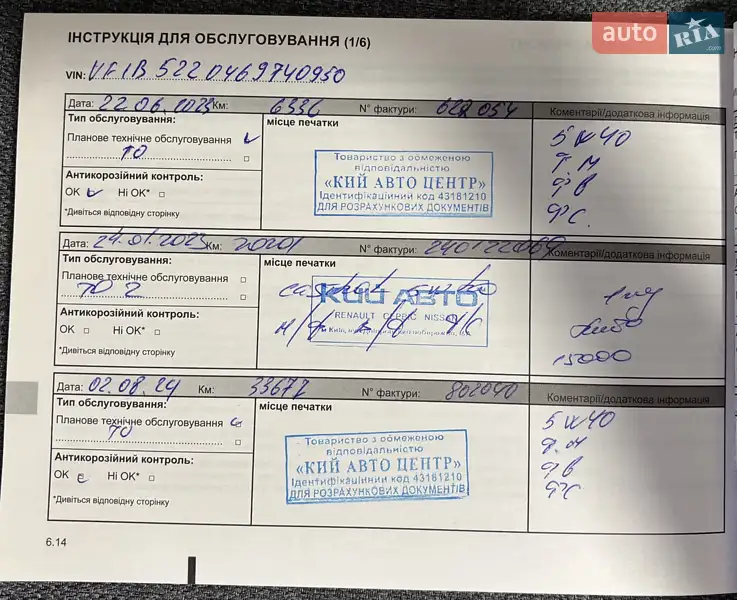 auto RIA .com
ІНСТРУКЦІЯ ДЛЯ ОБСЛУГОВУВАННЯ (1/6)
VIN: VF1B5220469740950
Дата: 22.06.2023 Км: 6336 N° фактури: 054 Коментарі/додаткова інформація
Тип обслуговування: місце печатки
Планове технічне обслуговування
ТО
Антикорозійний контроль:
OK Ні OK*
*Дивіться відповідну сторінку
Товариство з обмеженою
відповідальністю
«КИЙ АВТО ЦЕНТР»
Ідентифікаційний код 43181210
ДЛЯ РОЗРАХУНКОВИХ ДОКУМЕНТІВ
5w40
ф.м
фв
фс.
Дата: 24.01.2023 Км: 20201 N° фактури: Коментарі/додаткова інформація
Тип обслуговування: місце печатки
Планове технічне обслуговування
ТО 2
Антикорозійний контроль:
OK Ні OK*
*Дивіться відповідну сторінку
КИЙ АВТО
RENAULT СЕРВІС NISSAN
15000
Дата: 02.08.24 Км: 33672 N° фактури: 802040 Коментарі/додаткова інформація
Тип обслуговування: місце печатки
Планове технічне обслуговування
ТО
Антикорозійний контроль:
OK Ні OK*
*Дивіться відповідну сторінку
Товариство з обмеженою
відповідальністю
«КИЙ АВТО ЦЕНТР»
Ідентифікаційний код 43181210
ДЛЯ РОЗРАХУНКОВИХ ДОКУМЕНТІВ
5w40
ф.м
фв
фс
6.14